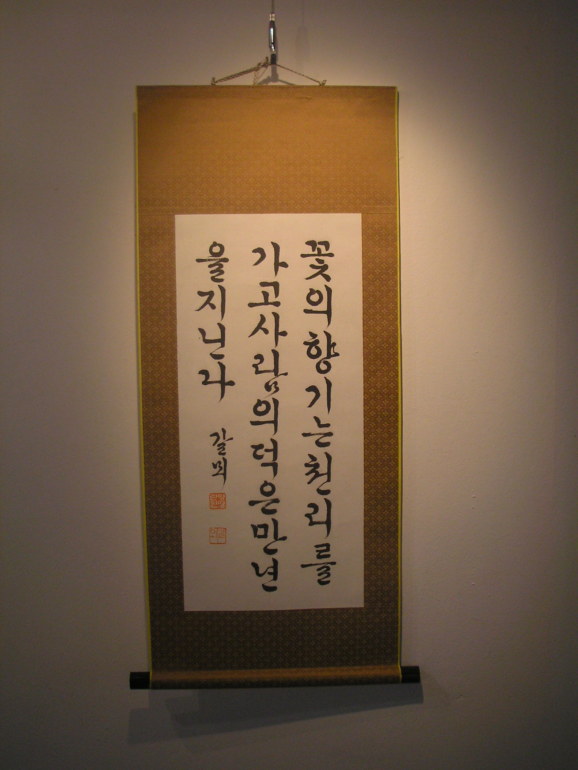 꽃의향기는천리를
가고사람의덕은만년
을지닌다
갈뫼